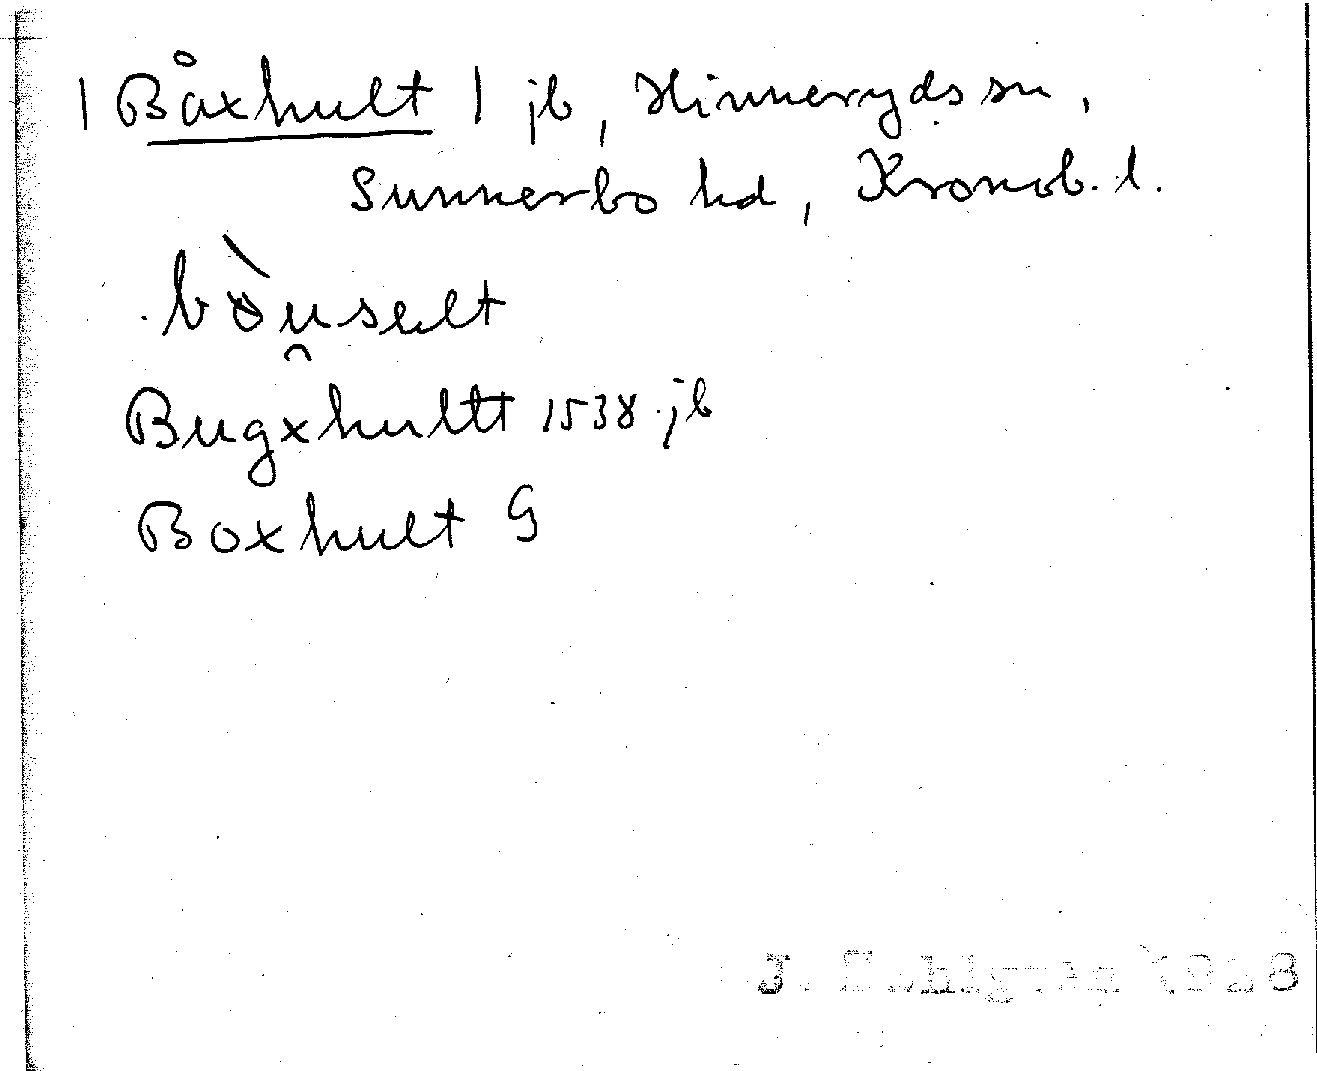 | Båxhult | jb, Hinneryds sn,
Sunnerbo hd, Kronob. l.
bòu̯sult
Bugxhultt 1538 jb
Boxhult G
J. Sahlgren 1928